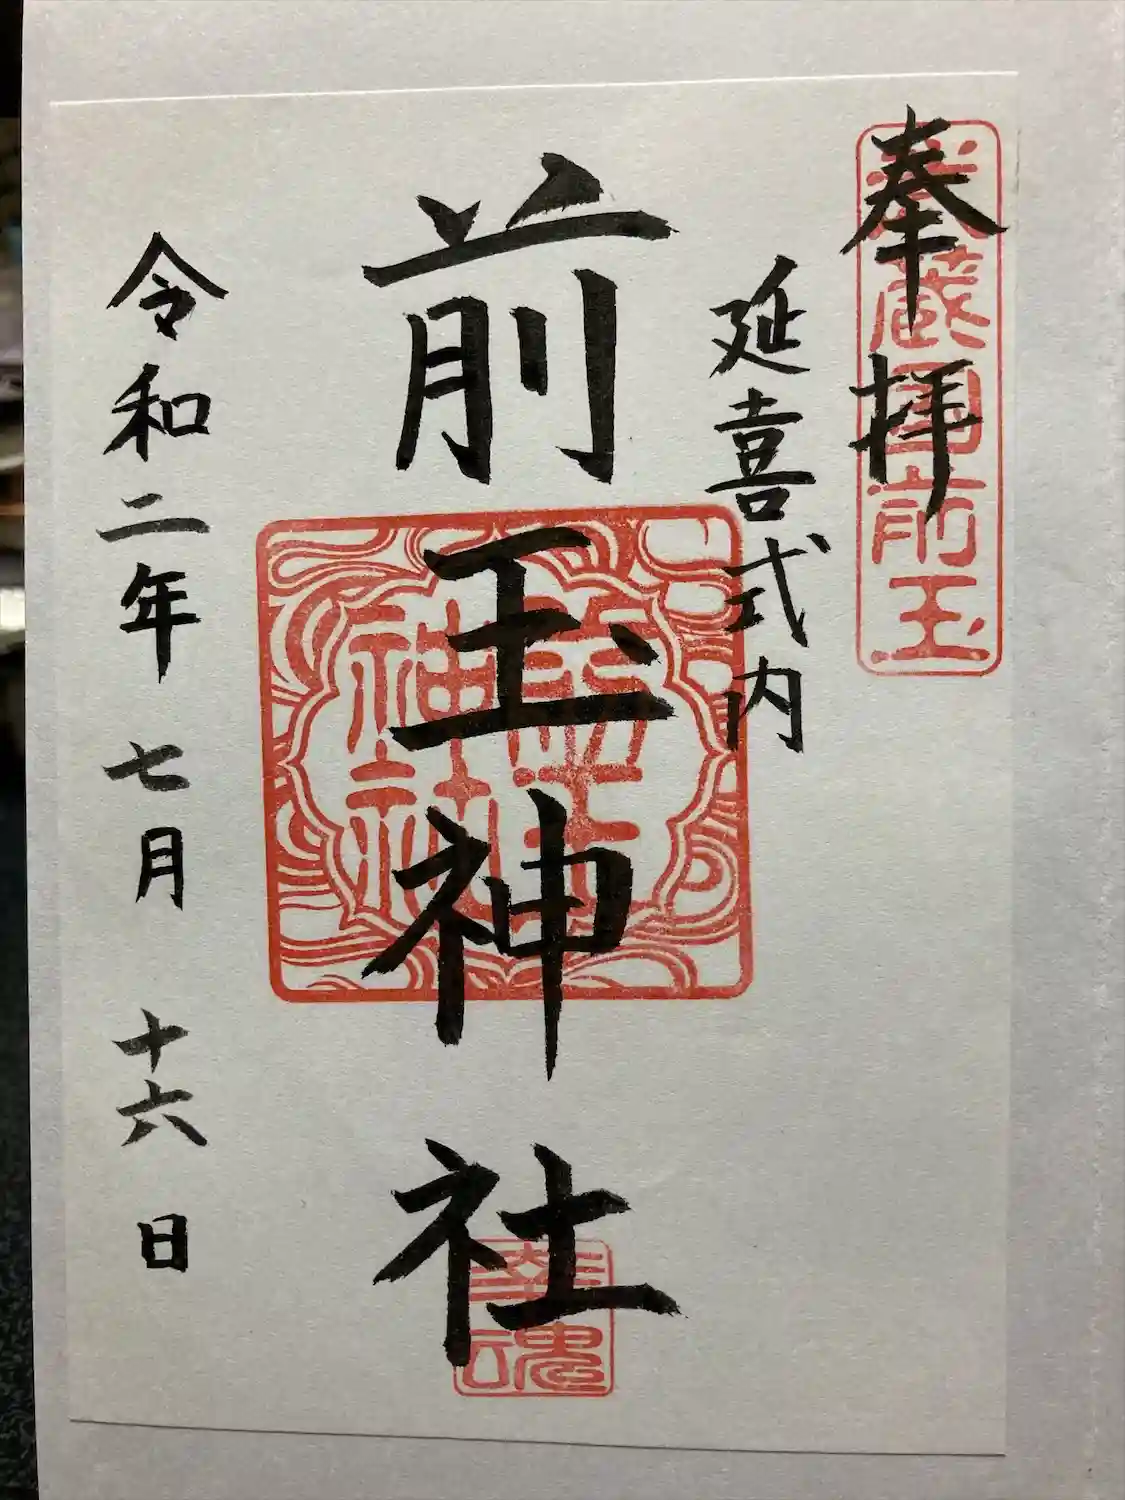 奉拝
武蔵国前玉
延喜式内
前玉神社
前玉神社
幸魂
令和二年七月十六日